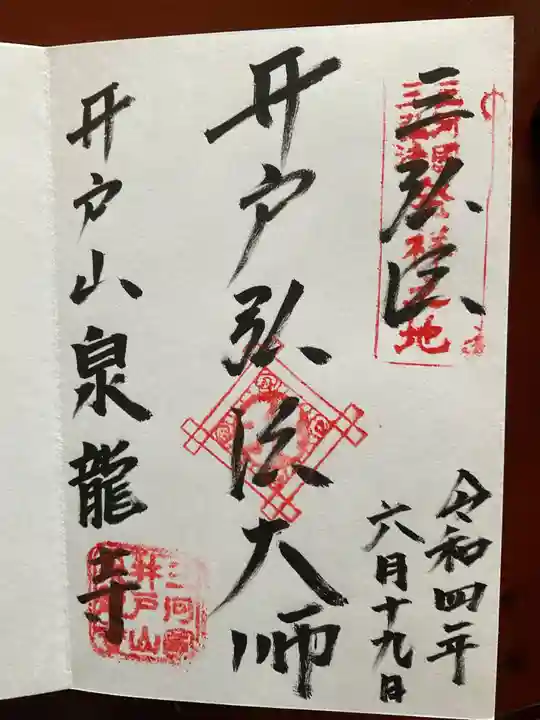 三弘法
三弘法
発祥之地
令和四年
六月十九日
井戸弘法大師
井戸山泉龍寺
三河国
井戸山